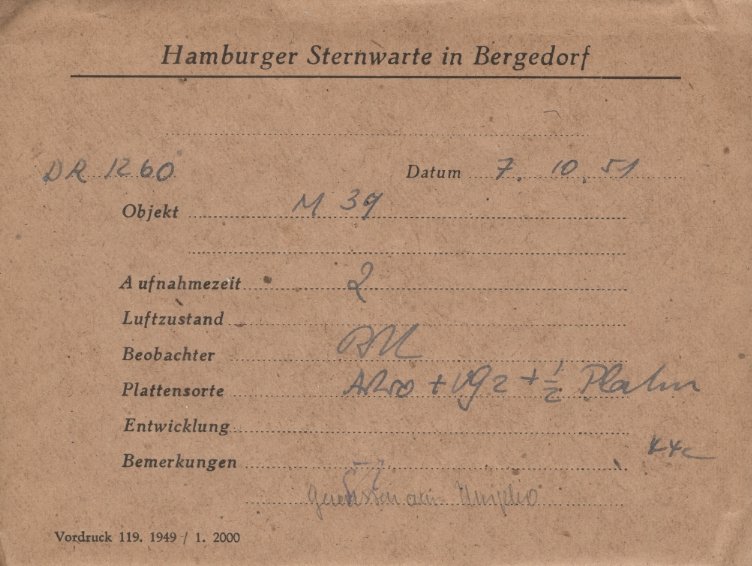 Hamburger Sternwarte in Bergedorf
DR 1260 Datum 7. 10. 51
Objekt M 39
Aufnahmezeit 2
Luftzustand
Beobachter
Plattensorte Astro + Vg2 + 1/2 Platin
Entwicklung
Bemerkungen
Vordruck 119. 1949 / 1. 2000